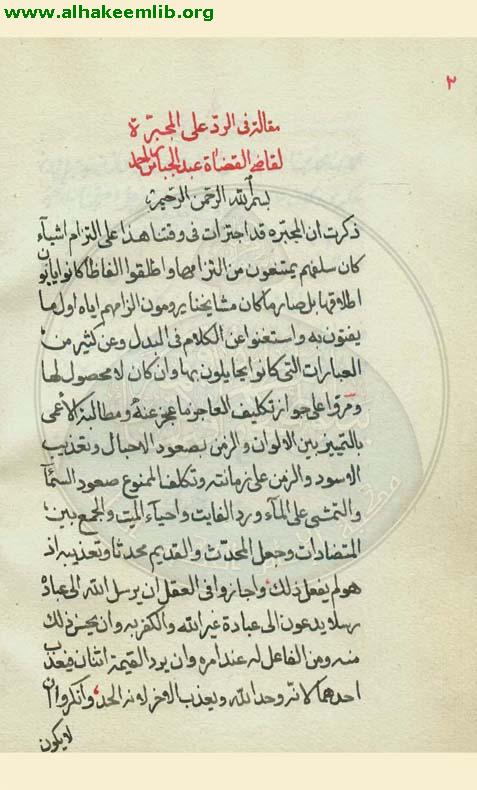 www.alhakeemlib.org
٢
مقالة فى الرد على المجبرة
لقاضى القضاة عبد الجبار بن احمد
بسم الله الرحمن الرحيم
ذكرت ان المجبره قد اجترات فى وقتنا هذا على التزام اشياء
كان سلفهم يمتنعون من التزامها واطلقوا الفاظا كانوا يابون
اطلاقها بل صار ما كان مشايخنا يرومون الزامهم اياه اول ما
يفتون به واستغنوا عن الكلام فى البدل وعن كثير من
العبارات التى كانوا يحايلون بها وان كان لا محصول لها
ومرقوا على جواز تكليف العاجز ما عجز عنه ومطالبة الاعمى
بالتمييز بين الالوان والزمن بصعود الاحبال وتعذيب
الاسود والزمن على زمانته وتكلف الممنوع صعود السماء
والتمشى على الماء ورد الفايت واحياء الميت والجمع بين
المتضادات وجعل المحدث والقديم محدثا وتعذيبه اذ
هو لم يفعل ذلك واجازوا فى العقل ان يرسل الله الى عباده
رسلا يدعون الى عبادة غير الله والكفر به وان يحسن ذلك
منه ومن الفاعل له عند امره وان يرد القيمة اثنان فيعذب
احدهما لانه وحد الله ويعذب الاخر لانه الحد وانكروا ان
لا يكون